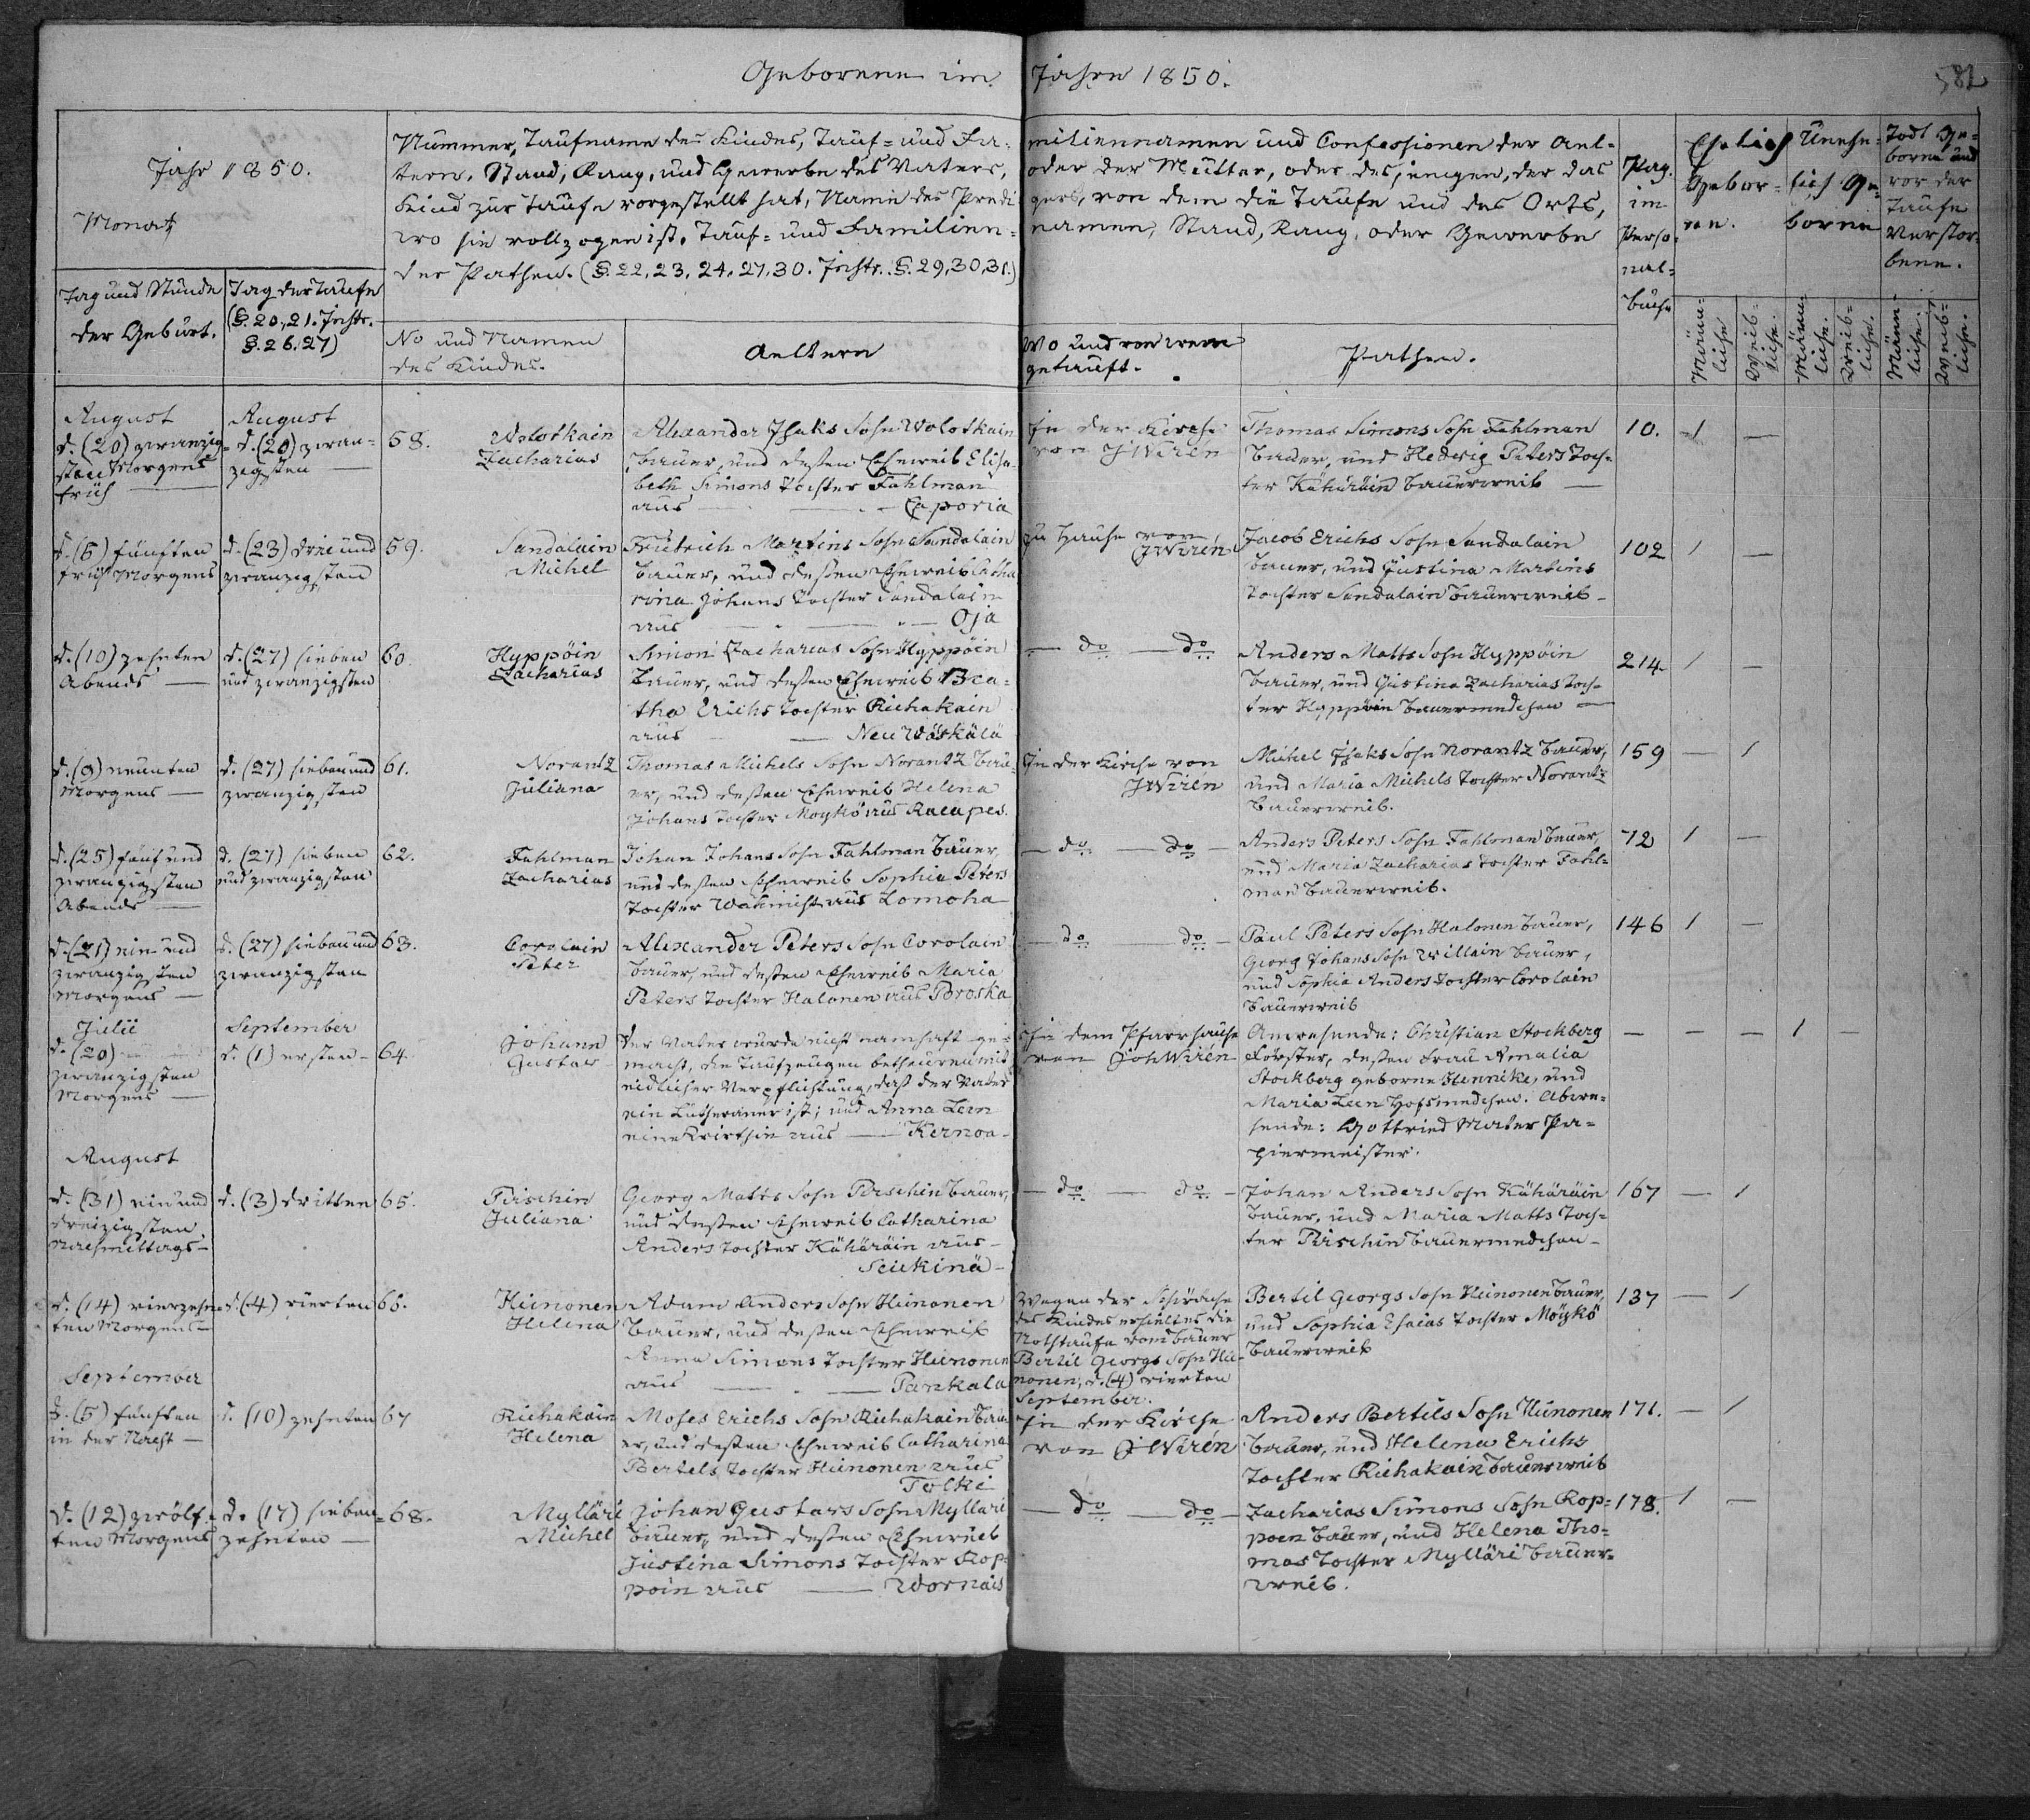 Geborene im Jahre 1850.
582
Jahr 1850.
Monat
Tag und Stunde
der Geburt.
Tag der Taufe
(§. 20, 21. Instr.
§. 26. 27)
Nummer, Taufname des Kindes, Tauf- und Fa-
miliennamen und Confessionen der Ael-
tern, Stand, Rang, und Gewerbe des Vaters,
oder der Mutter, oder desjenigen, der das
Kind zur Taufe vorgestellt hat, Name des Predi-
gers, von dem die Taufe und des Orts,
wo sie vollzogen ist. Tauf- und Familien-
namen, Stand, Rang, oder Gewerbe
der Pathen. (§. 22, 23, 24, 27, 30. Instr. §. 29, 30, 31.)
No und Namen
des Kindes.
Aeltern
Wo und von wem
getauft.
Pathen.
Pag.
im
Perso-
nal-
buche
Ehelich
Gebor-
ren.
Unehe-
lich Ge-
borne
Todt Ge-
borne und
vor der
Taufe
verstor-
bene.
Männ-
liche
Weib-
liche.
Männ-
liche.
Weib-
liche.
Männ-
liche.
Weib-
liche.
August
d. (20) zwanzig-
sten Morgens
früh —
August
d. (20) zwan-
zigsten —
58.
Wolotkain
Zacharias
Alexander Isaks Sohn Wolotkain
Bauer, und dessen Eheweib Elisa-
beth Simons Tochter Fahlman
aus — Caporia
In der Kirche
von JWirén
Thomas Simons Sohn Fahlman
Bauer, und Hedwig Peters Toch-
ter Kähäräin Bauerweib —
10. 1 —
d. (5) fünften
früh Morgens
d. (23) drei und
zwanzigsten
59.
Sandalain
Michel
Friedrich Martins Sohn Sandalain
Bauer, und dessen Eheweib Catha
rina Johans Tochter Sandalain
aus — Oja
zu Hause von
JWirén
Jacob Erichs Sohn Sandalain
Bauer, und Justina Martins
Tochter Sandalain Bauerweib —
102 1 —
d. (10) zehnten
Abends —
d. (27) sieben
und zwanzigsten
60.
Hyppöin
Zacharias
Simon Zacharias Sohn Hyppöin
Bauer, und dessen Eheweib Bea-
tha Erichs Tochter Riehakain
aus — Neu Wäskälä
— do — do
Anders Matts Sohn Hyppöin
Bauer, und Justina Zacharias Toch-
ter Hyppöin Bauermedchen —
214. 1 —
d. (9) neunten
Morgens —
d. (27) sieben und
zwanzigsten
61.
Norantz
Juliana
Thomas Michels Sohn Norantz Bau-
er, und dessen Eheweib Helena
Johans Tochter Moykö aus Racapes.
In der Kirche von
JWirén
Michel Isaks Sohn Norantz Bauer,
und Maria Michels Tochter Norantz
Bauerweib.
159 — 1
d. (25) fünf und
zwanzigsten
Abends —
d. (27) sieben
und zwanzigsten
62.
Fahlman
Zacharias
Johan Johans Sohn Fahlman Bauer,
und dessen Eheweib Sophia Peters
Tochter aus Lomoha
— do — do —
Anders Peters Sohn Fahlman Bauer,
und Maria Zacharias Tochter Fahl-
man Bauerweib.
72 1 —
d. (21) ein und
zwanzigsten
Morgens —
d. (27) sieben und
zwanzigsten
63.
Corolain
Peter
Alexander Peters Sohn Corolain
Bauer, und dessen Eheweib Maria
Peters Tochter Halonen aus Boroska
— do — do —
Paul Peters Sohn Halonen Bauer,
Georg Johans Sohn Willain Bauer,
und Sophia Anders Tochter Corolain
Bauerweib
146 1 —
Julii
d. (20)
zwanzigsten
Morgens —
September
d. (1) ersten —
64.
Johann
Gustav
Der Vater wurde nicht namhaft ge-
macht, die Taufzeugen betheuren mit
eidlicher Verpflichtung, daß der Vater
ein Lutheraner ist; und Anna Leen
eine Wirthin aus — Kernoa —
In dem Pfarrhause
von JohWirén
Anwesende: Christian Stockberg
Förster, dessen Frau Amalia
Stockberg geborne Hennike, und
Maria Leen Hofsmedchen. Abwe-
sende: Gottfried Mater Pa-
piermeister.
— — — 1 —
August
d. (31) ein und
dreizigsten
Nachmittags —
d. (3) dritten
65.
Pärschin
Juliana
Georg Matts Sohn Pärschin Bauer,
und dessen Eheweib Catharina
Anders Tochter Kähäräin aus —
Seukinä —
— do — do —
Johan Anders Sohn Kähäräin
Bauer, und Maria Matts Toch-
ter Pärschin Bauermedchen —
167 — 1
d. (14) vierzehn-
ten Morgens —
d. (4) vierten
66.
Hünonen
Helena
Adam Anders Sohn Hünonen
Bauer, und dessen Eheweib
Anna Simons Tochter Hünonen
aus — Pankala
Wegen der Schwäche
des Kindes erhielt es die
Nothtaufe vom Bauer
Bertil Georgs Sohn Hü-
nonen, d. (4) vierten
September.
Bertil Georgs Sohn Hünonen Bauer,
und Sophia Esaias Tochter Möykö
Bauerweib
137 — 1
September
d. (5) fünften
in der Nacht —
d. (10) zehnten
67
Riehakain
Helena
Moses Erichs Sohn Riehakain Bau-
er, und dessen Eheweib Catharina
Bertels Tochter Hünonen aus
Tolki
In der Kirche
von JWirén
Anders Bertils Sohn Hünonen
Bauer, und Helena Erichs
Tochter Riehakain Bauerweib
171. — 1
d. (12) zwölf-
ten Morgens
d. (17) sieben-
zehnten —
68.
Mylläri
Michel
Johan Gustavs Sohn Mylläri
Bauer, und dessen Eheweib
Justina Simons Tochter Rop-
poin aus — Wornais
— do — do —
Zacharias Simons Sohn Rop-
poen Bauer, und Helena Tho-
mas Tochter Mylläri Bauer-
weib.
178. 1 —